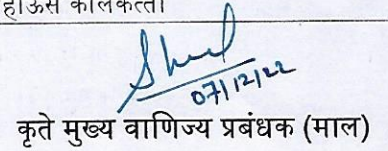 हाऊस कोलकत्ता
07/12/22
कृते मुख्य वाणिज्य प्रबंधक (माल)